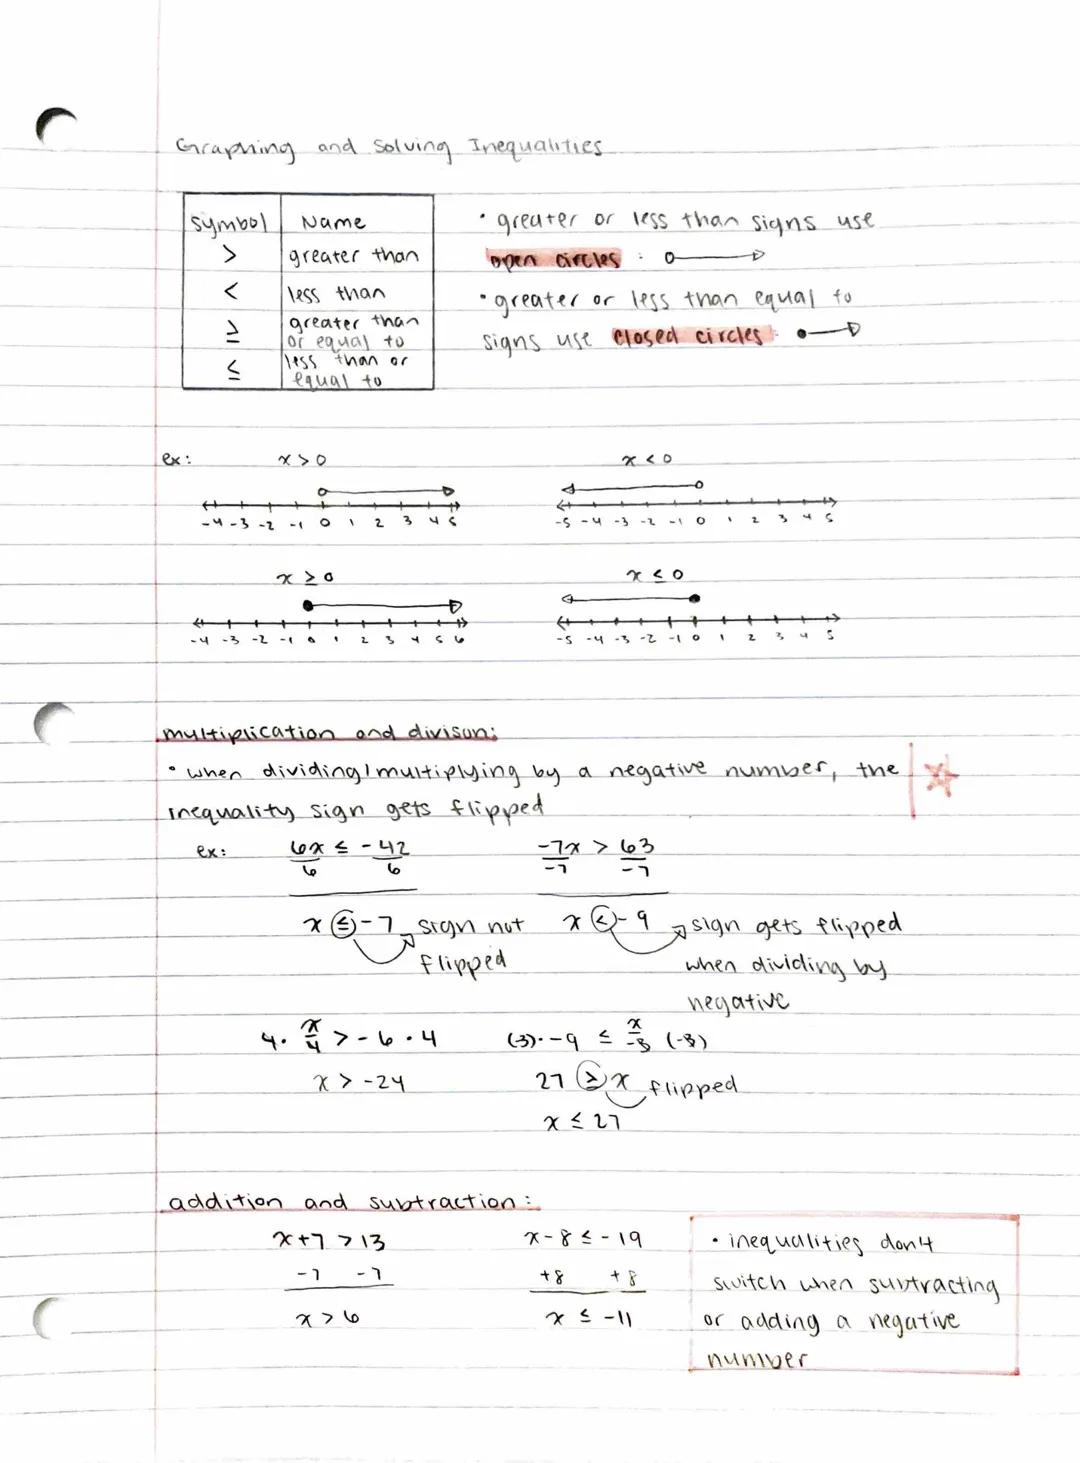 Graphing and Solving Inequalities
symbol Name
> greater than
< less than
≥ greater than
or equal to
≤ less than or
equal to
• greater or less than signs use
open circles :
• greater or less than equal to
signs use closed circles:
ex: x > 0
-4 -3 -2 -1 0 1 2 3 4 5
x < 0
-5 -4 -3 -2 -1 0 1 2 3 4 5
x ≥ 0
-4 -3 -2 -1 0 1 2 3 4 5 6
x ≤ 0
-5 -4 -3 -2 -1 0 1 2 3 4 5
multiplication and divison:
• when dividing/multiplying by a negative number, the
inequality sign gets flipped
ex: 6x ≤ -42
6 6
x ≤ -7 sign not
flipped
-7x > 63
-7 -7
x < -9 sign gets flipped
when dividing by
negative
4 · x/4 > -6 · 4
x > -24
(-3) · -9 ≤ x/-3 (-3)
27 ≥ x flipped
x ≤ 27
addition and subtraction:
x+7 > 13
-7 -7
x > 6
x-8 ≤ -19
+8 +8
x ≤ -11
• inequalities don't
switch when subtracting
or adding a negative
number